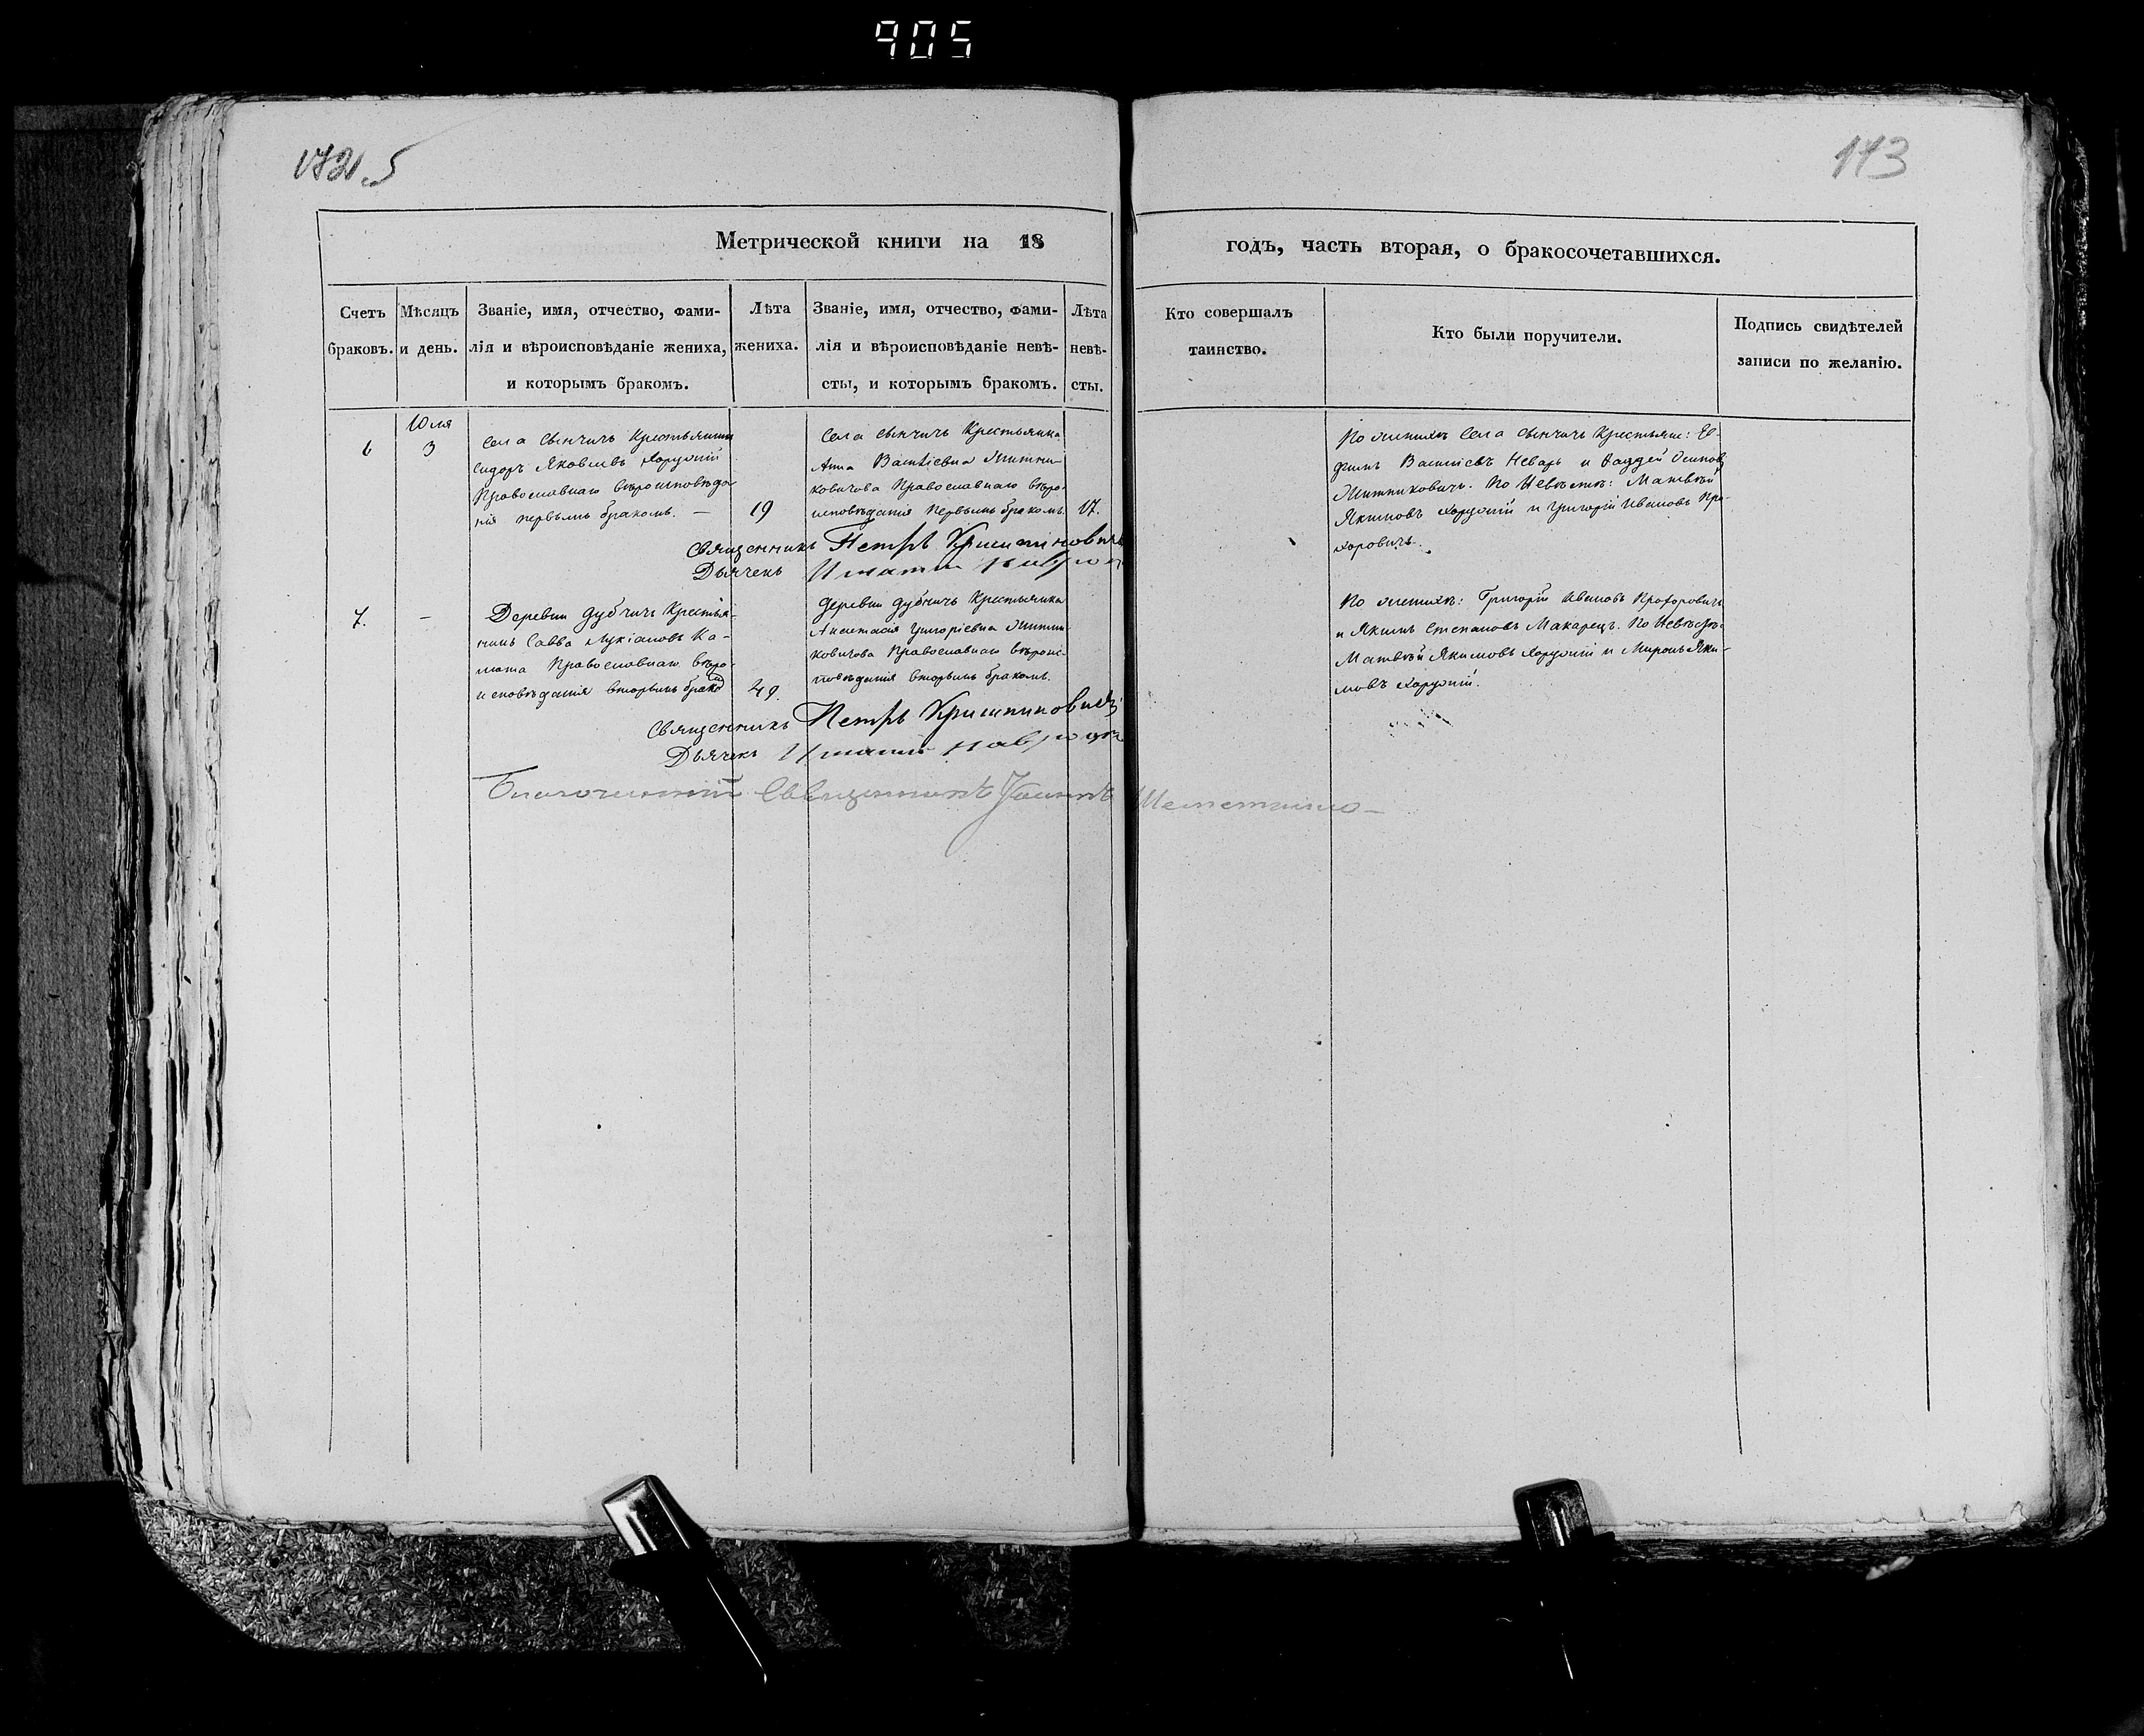 905
173
Метрической книги на 18
годъ, часть вторая, о бракосочетавшихся.
Счетъ браковъ.
Мѣсяцъ и день.
Званіе, имя, отчество, фами-
лія и вѣроисповѣданіе жениха,
и которымъ бракомъ.
Лѣта
жениха.
Званіе, имя, отчество, фами-
лія и вѣроисповѣданіе невѣ-
сты, и которымъ бракомъ.
Лѣта
невѣ-
сты.
Кто совершалъ
таинство.
Кто были поручители.
Подпись свидѣтелей
записи по желанію.
6
Юля
3
Села Свѣнчичъ Крестьянинъ
Сидоръ Яковлевъ Хорунгій
Православнаго вѣроисповѣда-
нія первымъ бракомъ. —
19
Села Свѣнчичъ Крестьянка
Анна
Православнаго вѣро-
исповѣданія Первымъ бракомъ.
17.
По женихѣ Села Свѣнчичъ Крестьяне: Ев-
фимъ Неваръ и Осиповъ
По Невѣстѣ: Матвѣй
Якимовъ Хорунгій и Григорій Ивановъ Про-
хоровичъ.
Священникъ Петръ
Дьячекъ
7.
—
Деревни Дубчичъ Крестья-
нинъ Савва Лукіановъ Ка-
Православнаго вѣро-
исповѣданія вторымъ бракомъ
49.
Деревни Дубчичъ Крестьянка
Анастасія Григоріевна
Православнаго вѣроис-
повѣданія вторымъ бракомъ.
По женихѣ: Григорій Ивановъ Прохоровичъ
и Якимъ Степановъ Макарецъ. По Невѣстѣ:
Матвѣй Якимовъ Хорунгій и Миронъ Яки-
мовъ Хорунгій.
Священникъ Петръ
Дьячекъ
Благочинный Священникъ